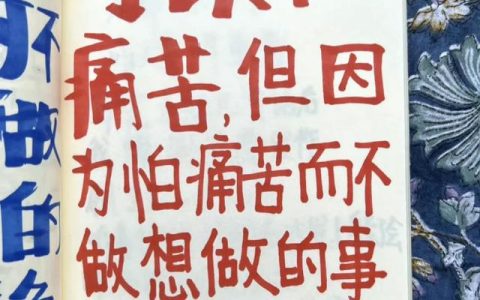 痛苦，但因
为怕痛苦而不
做想做的事
不
做的